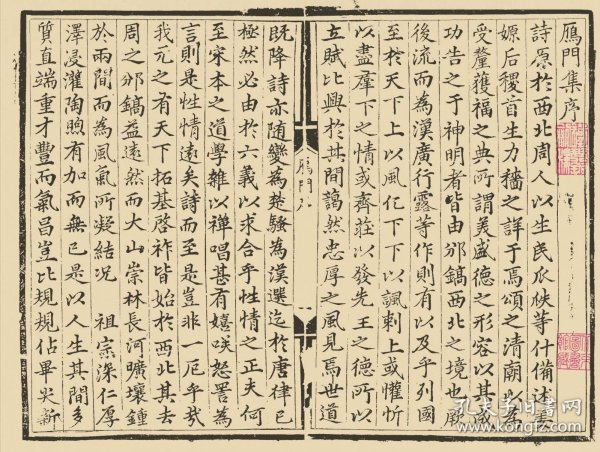 鴈門集序
詩原於西北周人以生民瓜瓞等什備述姜
嫄后稷肎生力穡之詳于焉頌之清朝以為
受釐獲福之典所謂美盛德之形容以其成
功告之于神明者皆由邠鎬西北之境也厥
後流而為漢廣行露等作則有以及乎列國
至於天下上以風化下下以諷刺上或懽忻
以盡羣下之情或齊莊以發先王之德所以
立賦比興於其間藹然忠厚之風見焉世道
鴈門
既降詩亦随變為楚騷為漢選迄於唐律已
極然必由於六義以求合乎性情之正夫何
至宋本之道學雜以禪唱甚有嬉咲怒詈為
言則是性情遠矣詩而至是豈非一厄乎哉
我元之有天下拓基啓祚皆始於西北其去
周之邠鎬益遠然而大山崇林長河曠壤鍾
於兩間而為風氣所凝結況 祖宗深仁厚
澤浸灌陶煦有加而無已是以人生其間多
質直端重才豐而氣昌豈比規規佔畢尖新
孔夫子旧书网
www.kongfz.com